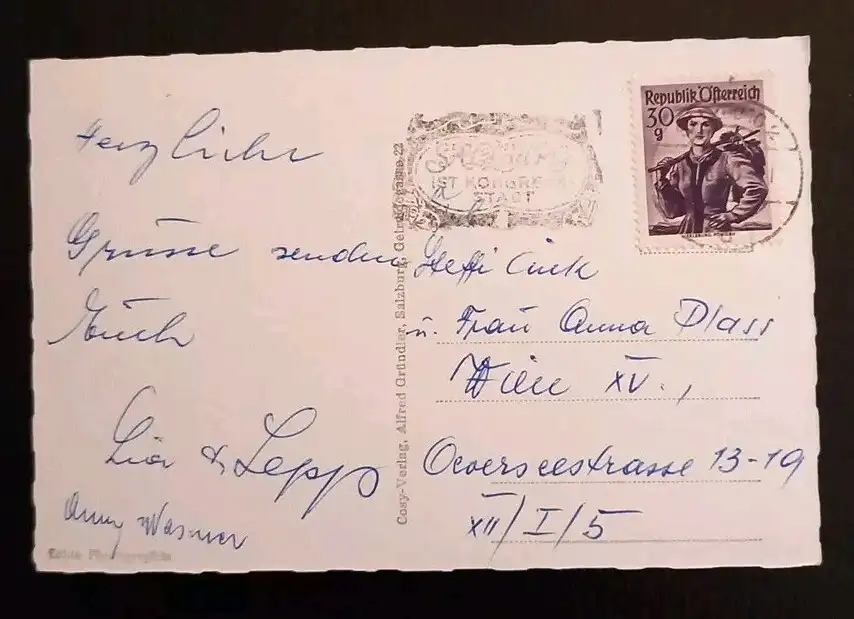 Herzliche
Grüsse senden
Euch
Lia & Sepp
Anny Wasner
Echte Photographie
Cosy-Verlag, Alfred Gründler, Salzburg, Getreidegasse 22
IST KONGRESS-
STADT
Republik Österreich
30
g
Steffi
u. Frau Anna Plass
Wien XV.,
Oeverseestrasse 13-19
XII/I/5